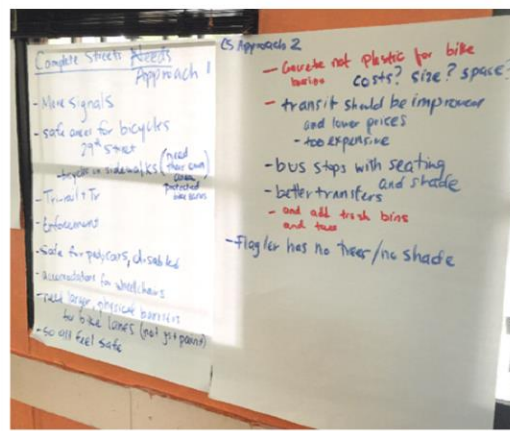 Complete Streets Needs
Approach 1
- More signals
- safe areas for bicycles
29th Street
- bicycles on sidewalks (need
their own
protected
bike lanes
- Tri-rail + Tr
- Enforcement
- Safe for peds, cars, disabled
- accomodations for wheelchairs
- need larger, physical barriers
for bike lanes (not just paint)
- so all feel safe
CS Approach 2
- Concrete not plastic for bike
costs? size? space?
- transit should be improved
and lower prices
- too expensive
- bus stops with seating
and shade
- better transfers
- and add trash bins
and trees
- Flagler has no trees/no shade